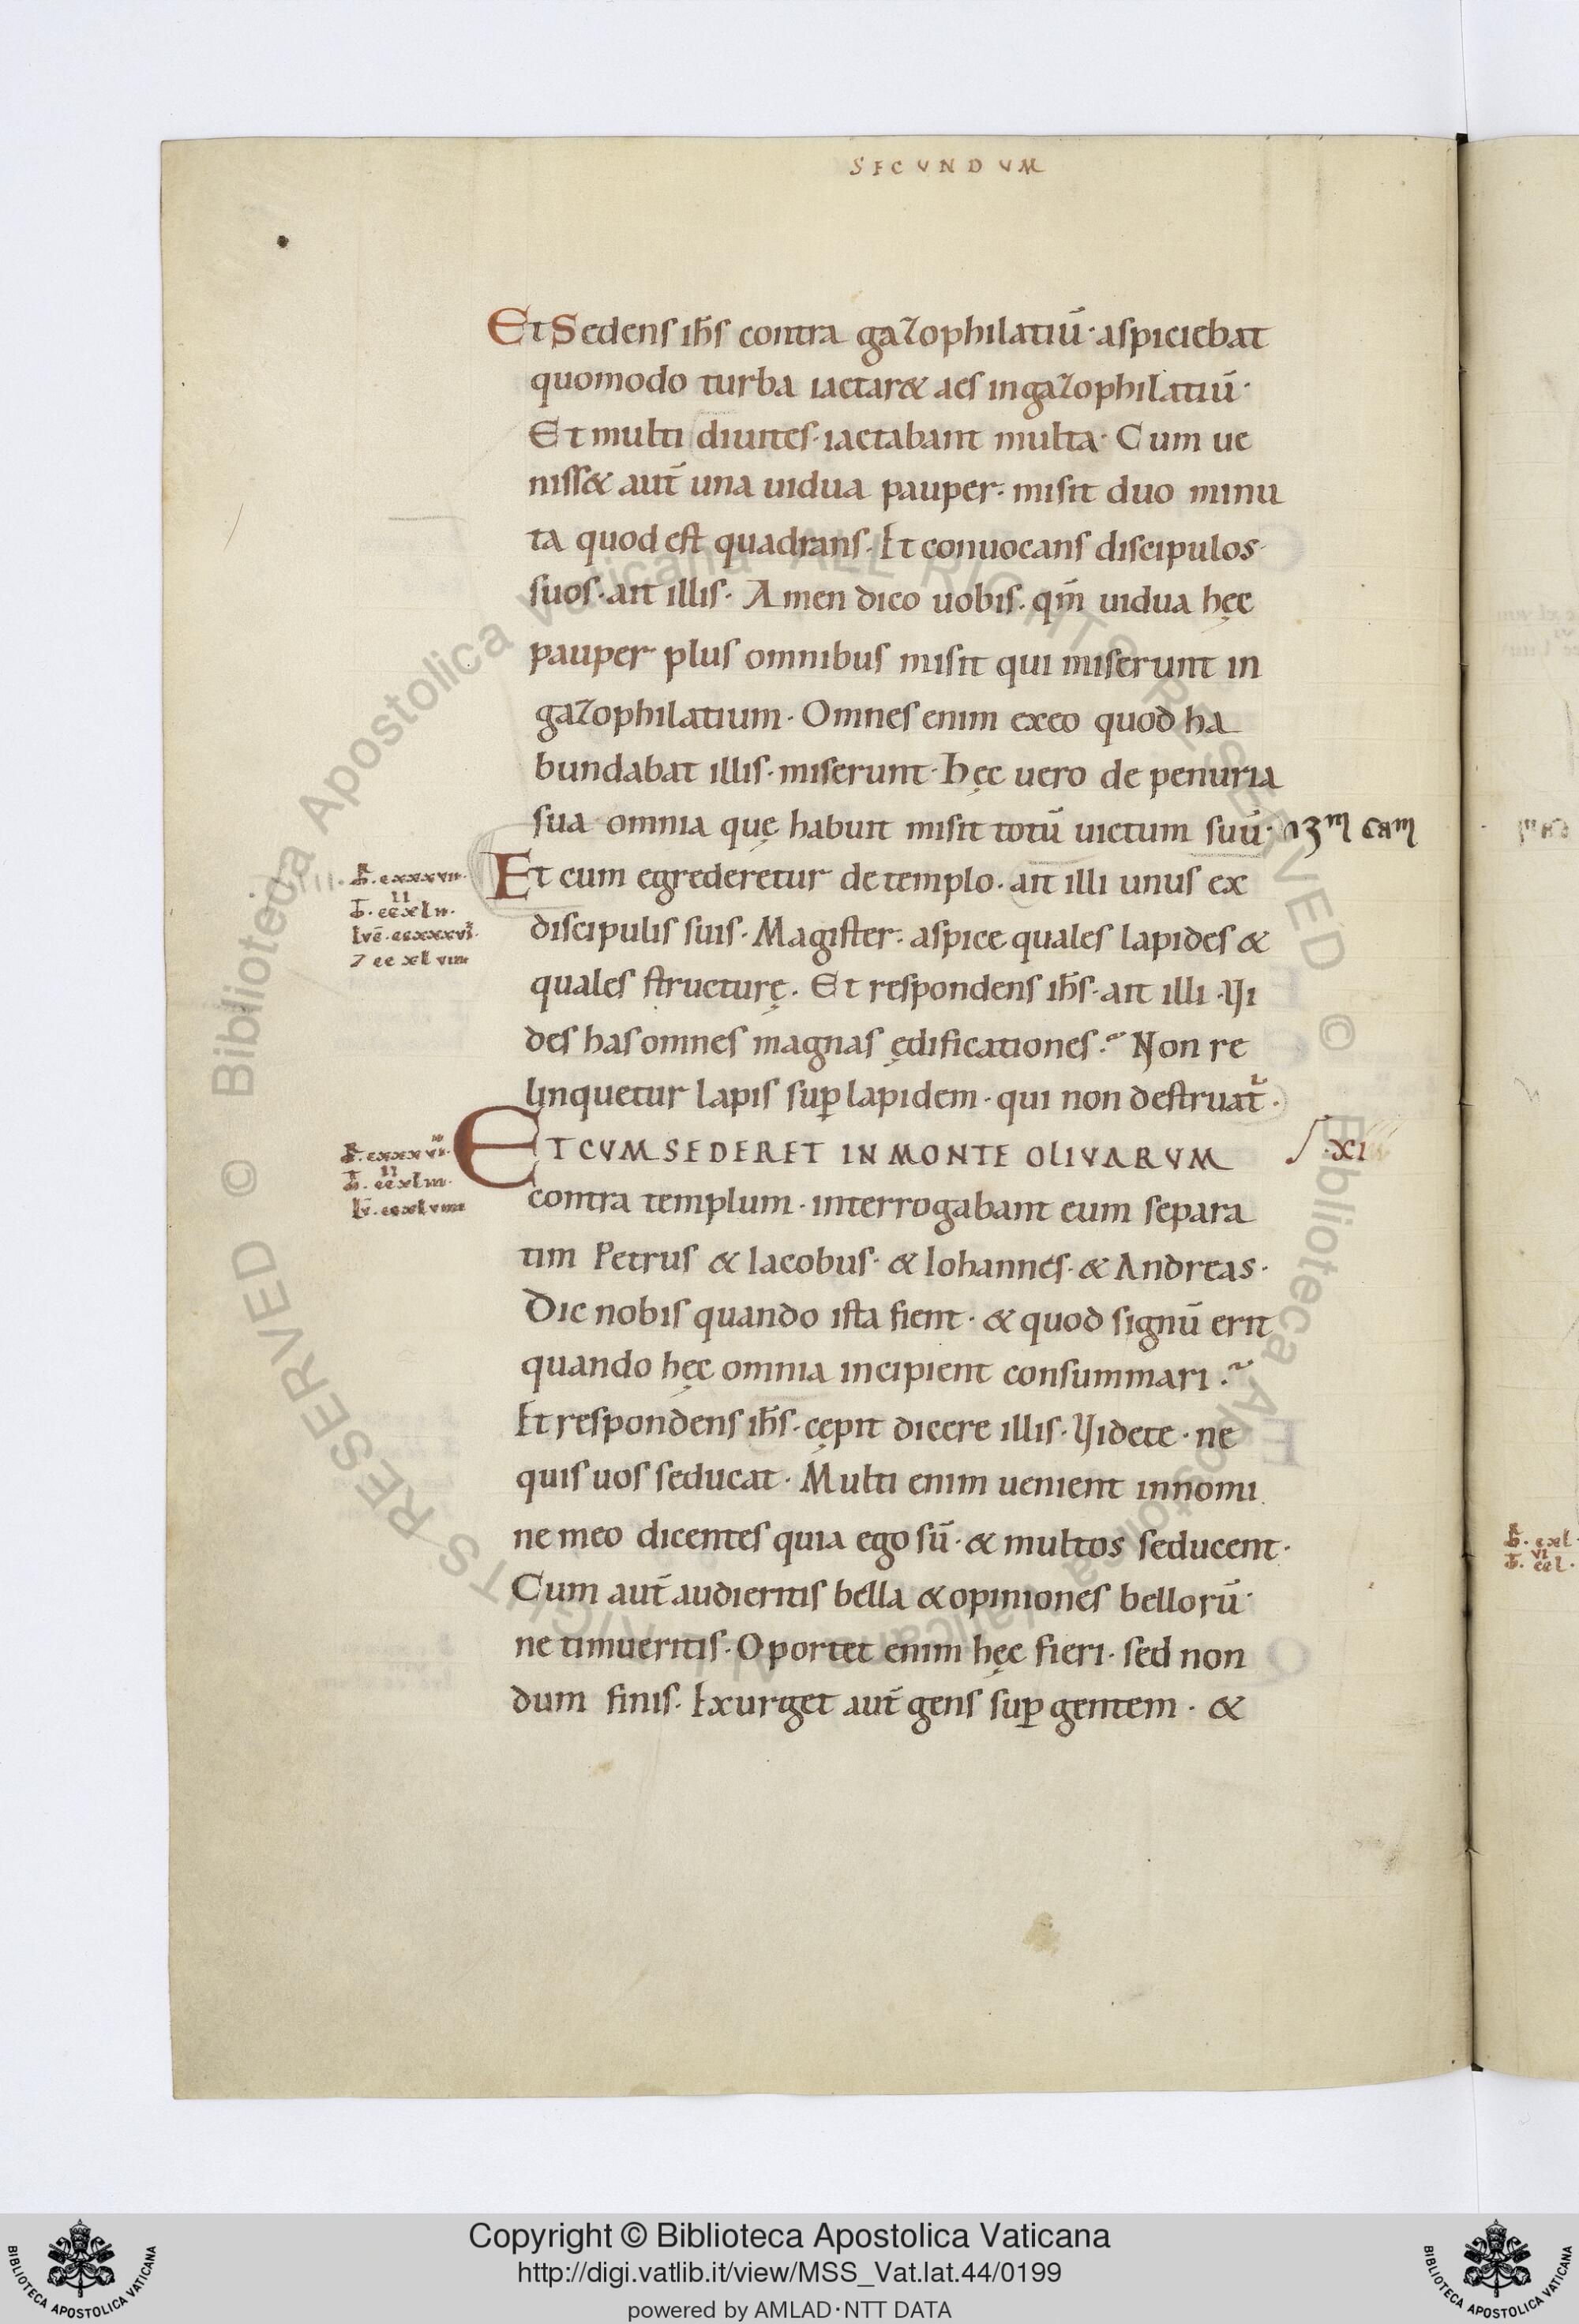 SECUNDUM
Et Sedens ih̄s contra gazophilatiū· aspiciebat
quomodo turba iactar& aes in gazophilatiū·
Et multi diuites· iactabant multa· Cum ue
niss& aut̄ una uidua pauper· misit duo minu
ta quod est quadrans· Et conuocans discipulos
suos· ait illis· Amen dico uobis· qm̄ uidua hęc
pauper plus omnibus misit qui miserunt in
gazophilatium· Omnes enim ex eo quod ha
bundabat illis· miserunt· Hęc uero de penuria
sua omnia quę habuit misit totū uictum suū·
Et cum egrederetur de templo· ait illi unus ex
discipulis suis· Magister· aspice quales lapides &
quales structurę· Et respondens ih̄s· ait illi· Vi
des has omnes magnas ędificationes? Non re
linquetur lapis sup̱ lapidem· qui non destruat᷑·
ET CVM SEDERET IN MONTE OLIVARVM
·XI
contra templum· interrogabant eum separa
tim Petrus & Iacobus· & Iohannes· & Andreas·
Dic nobis quando ista fient· & quod signū erit
quando hęc omnia incipient consummari?
Et respondens ih̄s· cępit dicere illis· Videte· ne
quis uos seducat· Multi enim uenient in nomi
ne meo dicentes quia ego sū· & multos seducent·
Cum aut̄ audieritis bella & opiniones bellorū·
ne timueritis· Oportet enim hęc fieri· sed non
dum finis· Exurget aut̄ gens sup̱ gentem· &
© Biblioteca Apostolica Vaticana ALL RIGHTS RESERVED
© Biblioteca Apostolica Vaticana ALL RIGHTS RESERVED
Copyright © Biblioteca Apostolica Vaticana
http://digi.vatlib.it/view/MSS_Vat.lat.44/0199
powered by AMLAD·NTT DATA
BIBLIOTECA APOSTOLICA VATICANA
BIBLIOTECA APOSTOLICA VATICANA